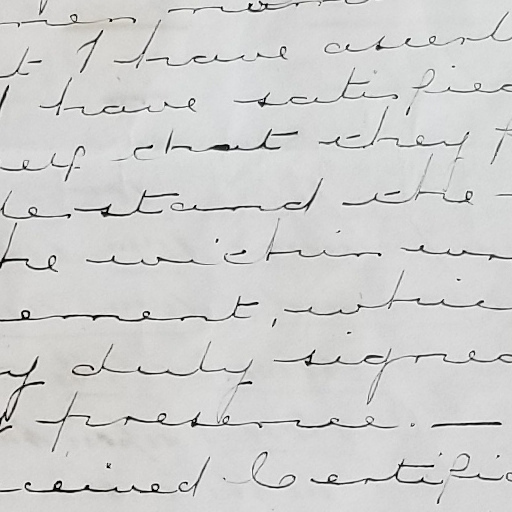 t I have ascert
I have satisfied
elf that they f
derstand the
he within wr
ement, which
y duly signed
presence. —
ceived Certific